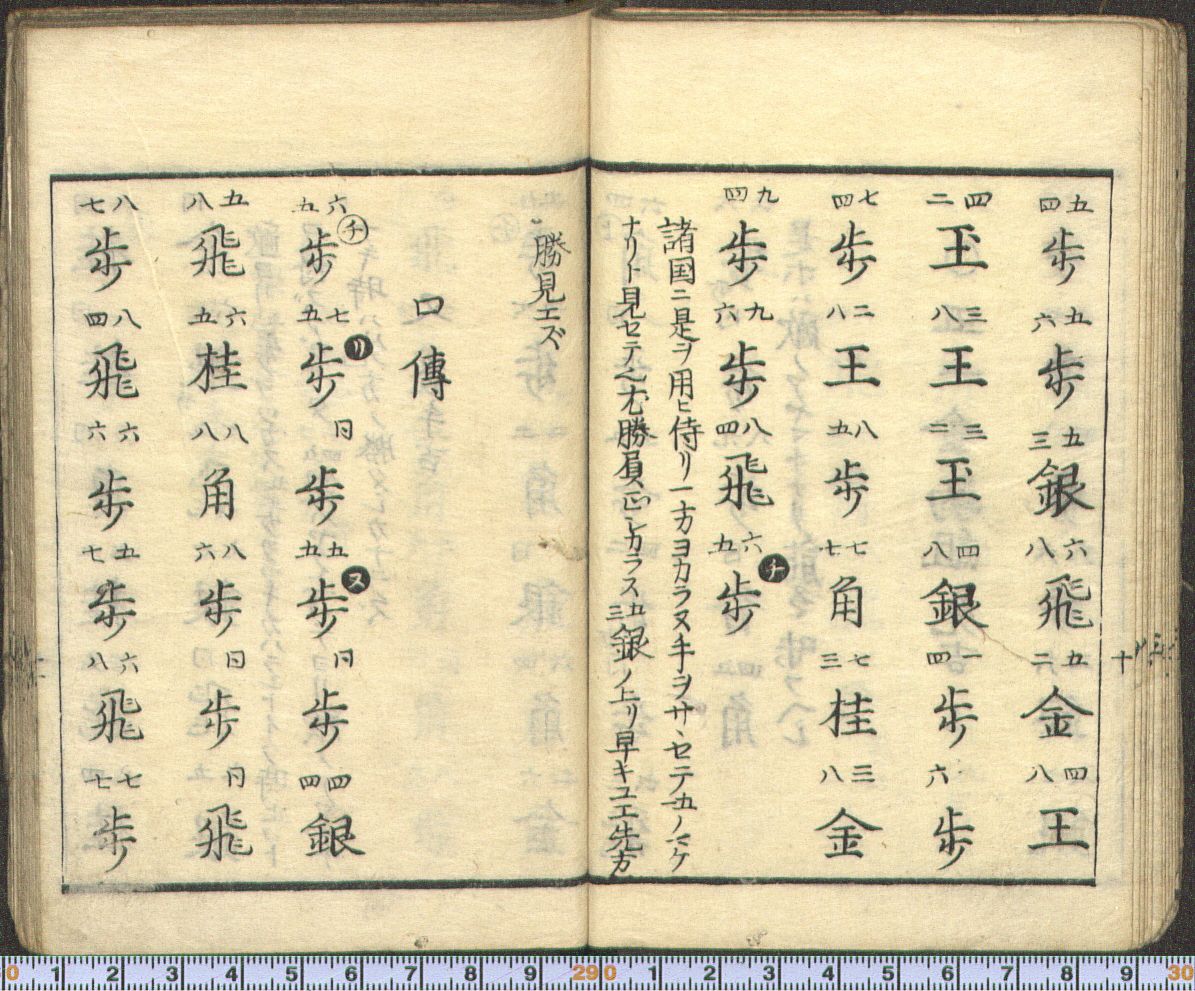 五四歩 五六歩 五三銀 六八飛 五二金 四八王
四二玉 三八王 三二玉 四八銀 一四歩 六歩
七四歩 二八王 八五歩 七七角 七三桂 三八金
九四歩 九六歩 八四飛 六五歩 チ
諸国ニ是ヲ用ヒ侍リ一方ヨカラヌ手ヲサヽセテ五ノマケ
ナリト見セテ勝負正シカラス五三銀ノ上リ早キユエ先方
十
勝見エズ
口傳
六五歩 チ 七五歩 リ 同歩 五五歩 ヌ 同歩 四四銀
五八飛 六五桂 八八角 八六歩 同歩 同飛
八七歩 八四飛 六六歩 五七歩 六八飛 七七歩
0 1 2 3 4 5 6 7 8 9 290 1 2 3 4 5 6 7 8 9 30